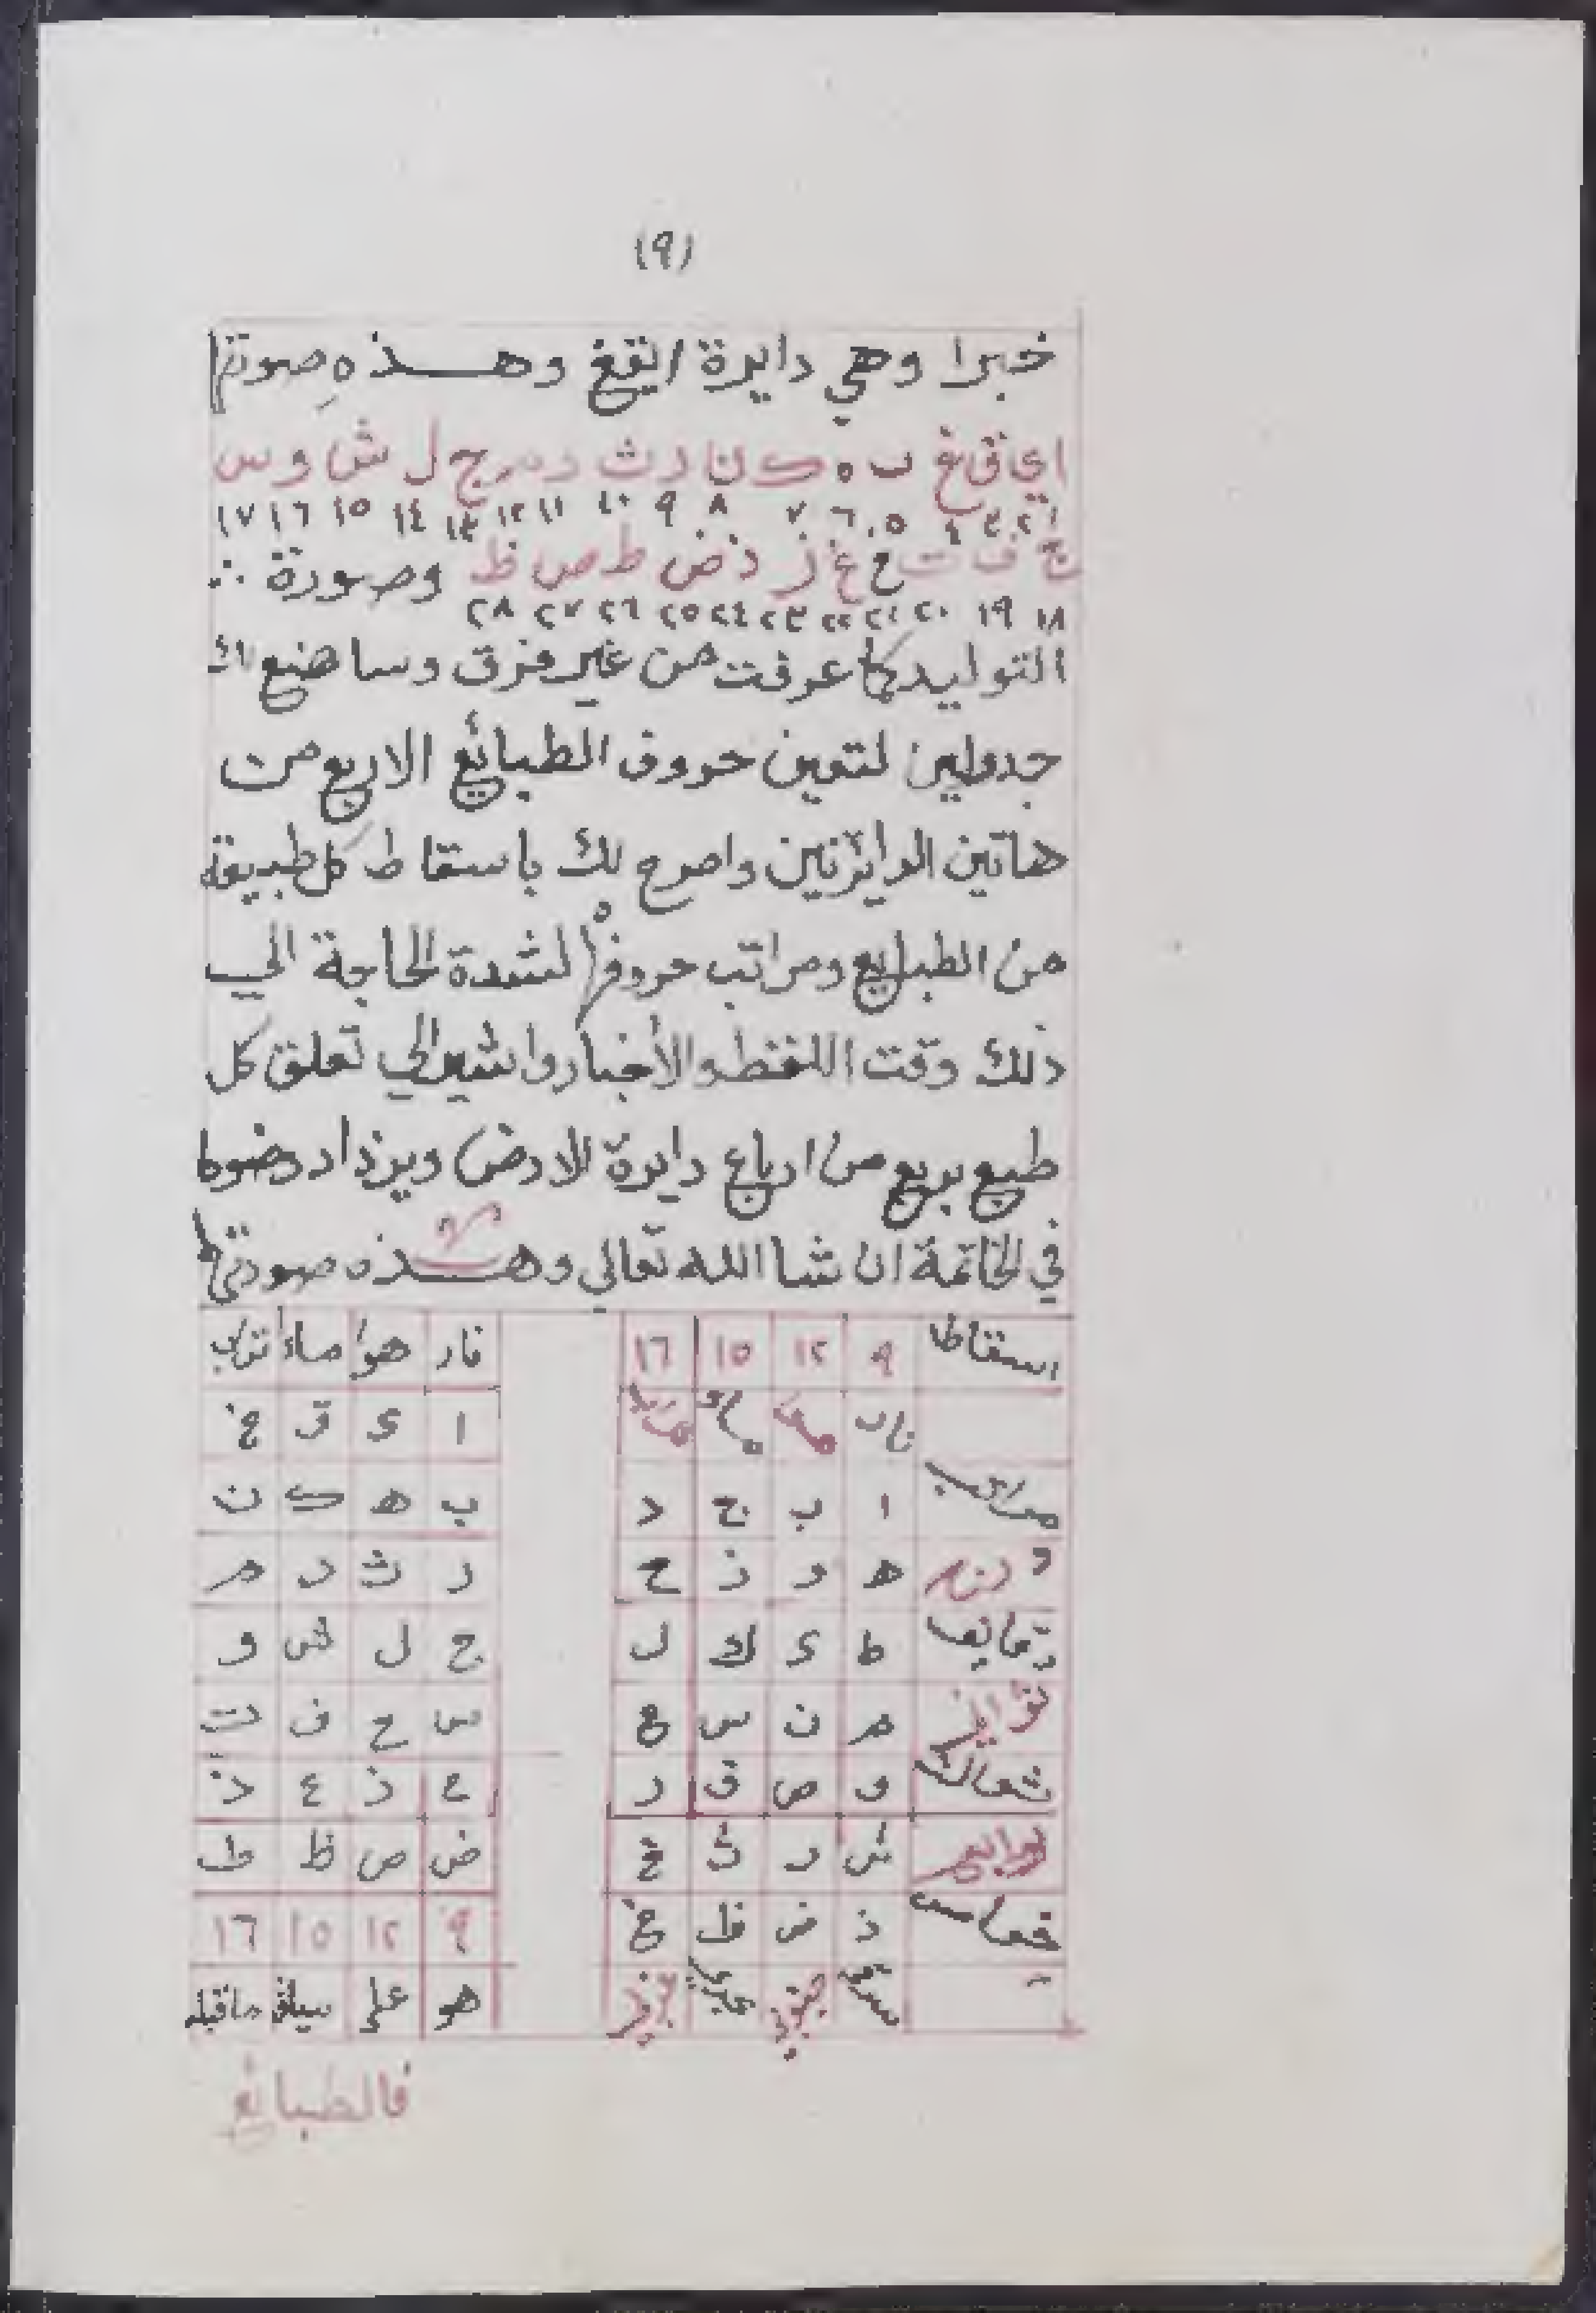 (٩)
خبرا وهي دايرة ايقغ وهـــذه صورتها
ا ي ق غ ب ه ك ن ر ث د م ج ل ش و س
١ ٢ ٣ ٤ ٥ ٦ ٧ ٨ ٩ ١٠ ١١ ١٢ ١٣ ١٤ ١٥ ١٦ ١٧
ح ف ت خ ع ز ذ ض ط ص ظ وصورة ∴
١٨ ١٩ ٢٠ ٢١ ٢٢ ٢٣ ٢٤ ٢٥ ٢٦ ٢٧ ٢٨
التوليد كما عرفت من غير فرق وساضع لك
جدولين لتعين حروف الطبائع الاربع من
هاتين الدايرتين واصرح لك باسقاط كل طبيعة
من الطبايع ومراتب حروفها لشدة الحاجة الي
ذلك وقت اللفظ والأخبار واشير الي تعلق كل
طبع بربع من ارباع دايرة الارض ويزداد وضوحا
في الخاتمة ان شا الله تعالي وهـــذه صورتها
اسقاط ٩ ١٢ ١٥ ١٦
نار هوا ماء تراب
مراتب ا ب ج د
درج ه و ز ح
دقايق ط ي ك ل
ثواني م ن س ع
ثوالث ف ص ق ر
روابع ش ت ث خ
خوامس ذ ض ظ غ
شرقي جنوبي بحري غربي
نار هوا ماء تراب
ا ي ق غ
ب ه ك ن
ر ث د م
ج ل ش و
س ح ف ت
خ ز ع ذ
ض ص ظ ط
٩ ١٢ ١٥ ١٦
هو علي سياق ماقبله
فالطبائع